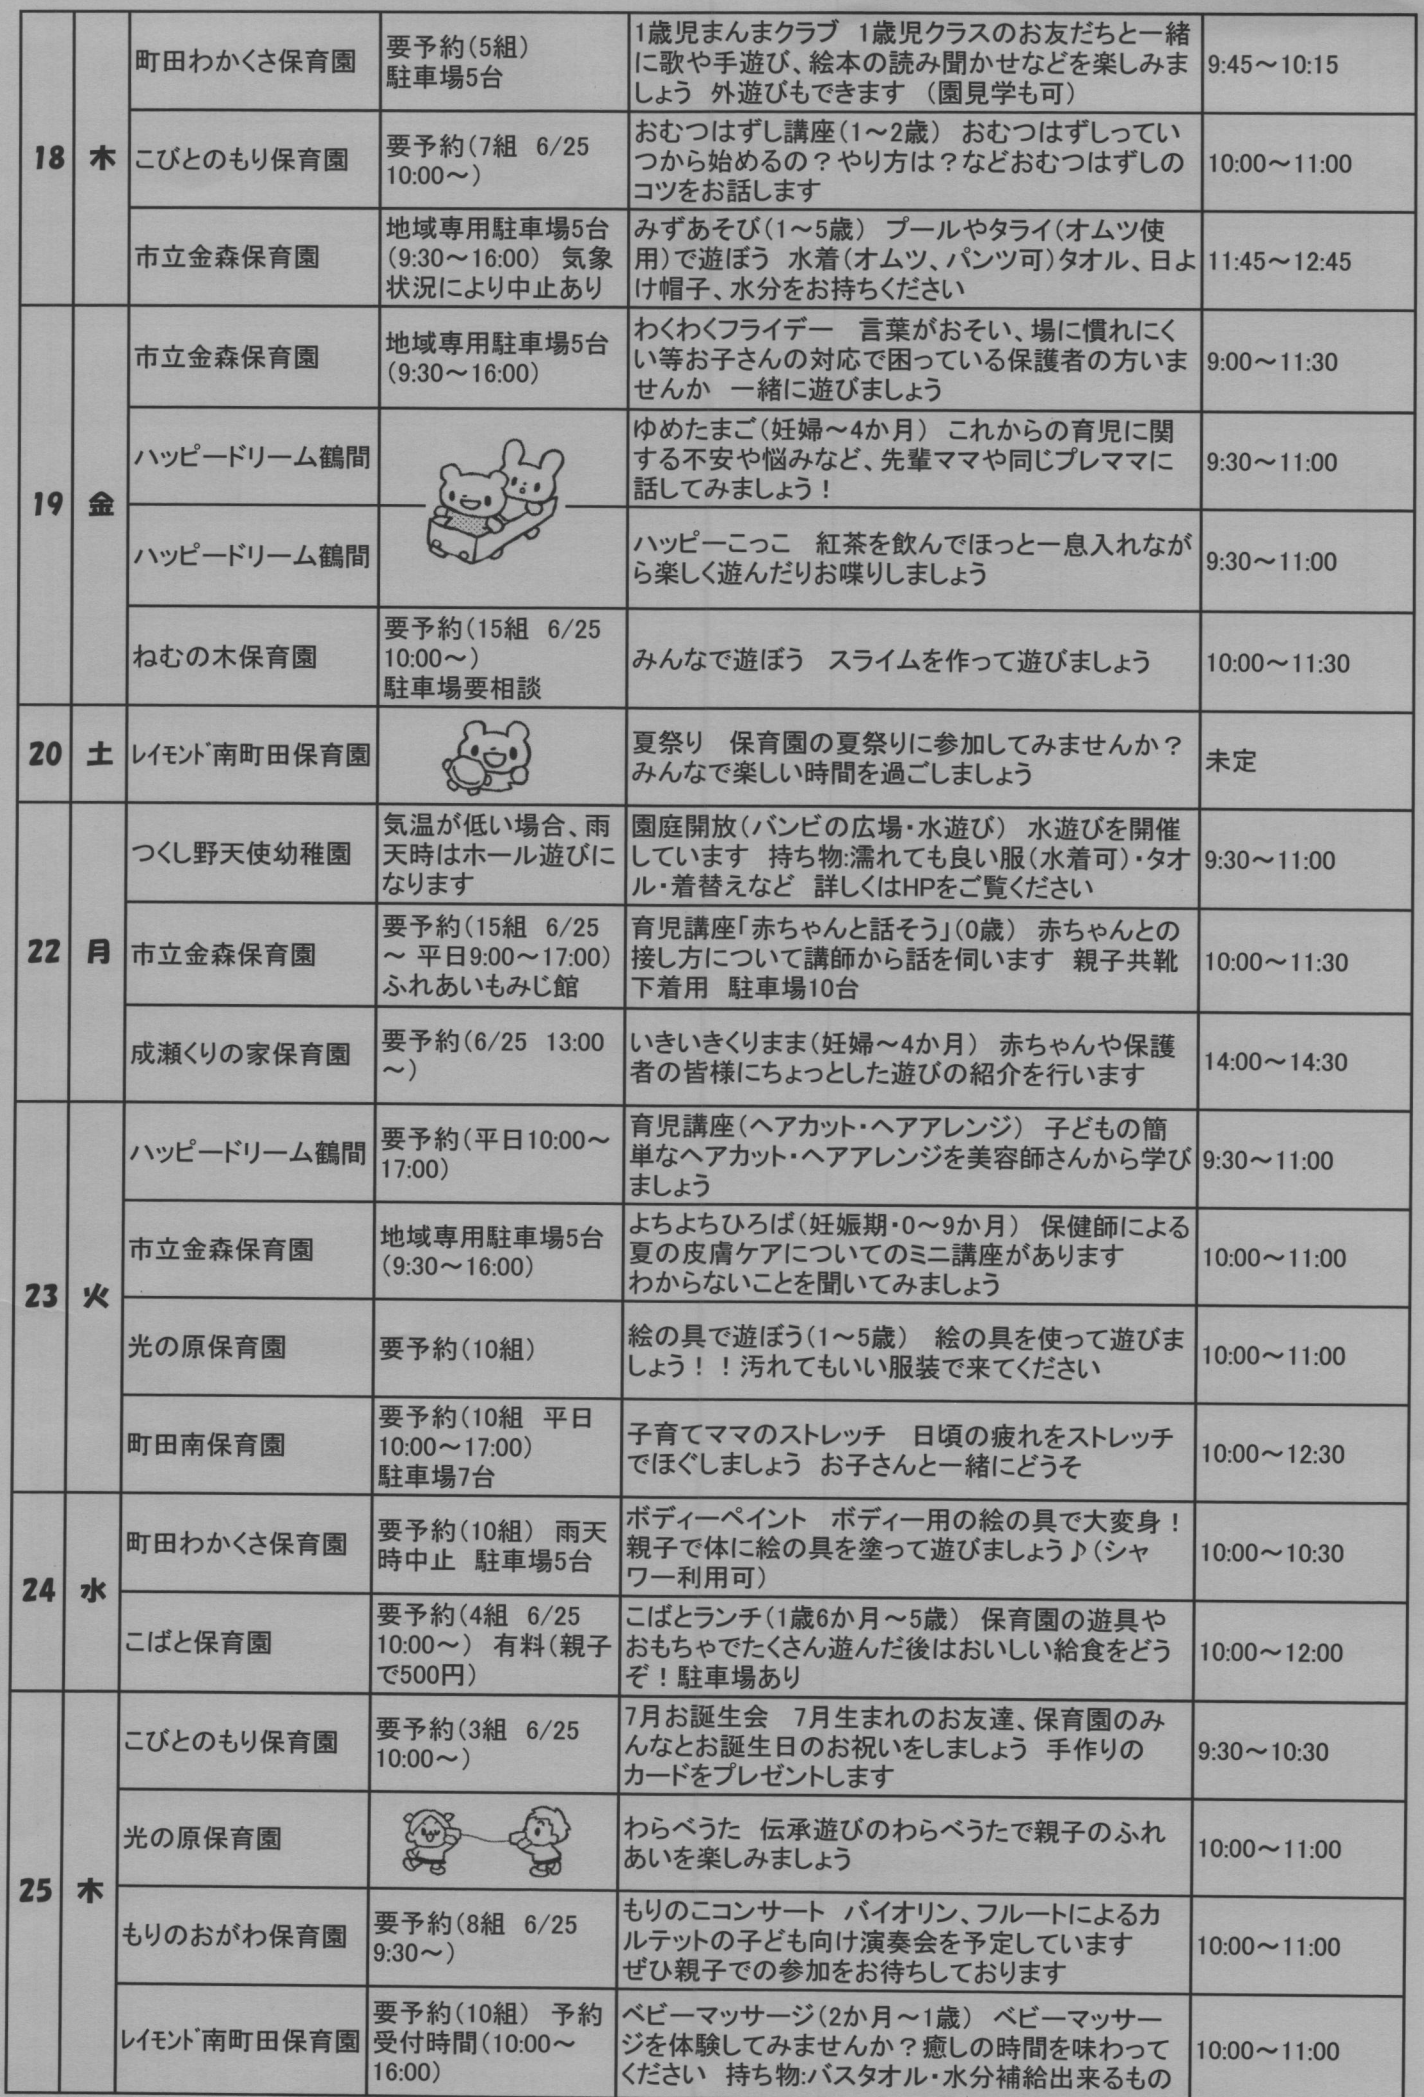 18 木
町田わかくさ保育園
要予約(5組)
駐車場5台
1歳児まんまクラブ 1歳児クラスのお友だちと一緒
に歌や手遊び、絵本の読み聞かせなどを楽しみま
しょう 外遊びもできます (園見学も可)
9:45～10:15
こびとのもり保育園
要予約(7組 6/25
10:00～)
おむつはずし講座(1～2歳) おむつはずしってい
つから始めるの？やり方は？などおむつはずしの
コツをお話します
10:00～11:00
市立金森保育園
地域専用駐車場5台
(9:30～16:00) 気象
状況により中止あり
みずあそび(1～5歳) プールやタライ(オムツ使
用)で遊ぼう 水着(オムツ、パンツ可)タオル、日よ
け帽子、水分をお持ちください
11:45～12:45
19 金
市立金森保育園
地域専用駐車場5台
(9:30～16:00)
わくわくフライデー 言葉がおそい、場に慣れにく
い等お子さんの対応で困っている保護者の方いま
せんか 一緒に遊びましょう
9:00～11:30
ハッピードリーム鶴間
ゆめたまご(妊婦～4か月) これからの育児に関
する不安や悩みなど、先輩ママや同じプレママに
話してみましょう！
9:30～11:00
ハッピードリーム鶴間
ハッピーこっこ 紅茶を飲んでほっと一息入れなが
ら楽しく遊んだりお喋りしましょう
9:30～11:00
ねむの木保育園
要予約(15組 6/25
10:00～)
駐車場要相談
みんなで遊ぼう スライムを作って遊びましょう
10:00～11:30
20 土
ﾚｲﾓﾝﾄﾞ南町田保育園
夏祭り 保育園の夏祭りに参加してみませんか？
みんなで楽しい時間を過ごしましょう
未定
22 月
つくし野天使幼稚園
気温が低い場合、雨
天時はホール遊びに
なります
園庭開放(バンビの広場・水遊び) 水遊びを開催
しています 持ち物:濡れても良い服(水着可)・タオ
ル・着替えなど 詳しくはHPをご覧ください
9:30～11:00
市立金森保育園
要予約(15組 6/25
～ 平日9:00～17:00)
ふれあいもみじ館
育児講座「赤ちゃんと話そう」(0歳) 赤ちゃんとの
接し方について講師から話を伺います 親子共靴
下着用 駐車場10台
10:00～11:30
成瀬くりの家保育園
要予約(6/25 13:00
～)
いきいきくりまま(妊婦～4か月) 赤ちゃんや保護
者の皆様にちょっとした遊びの紹介を行います
14:00～14:30
23 火
ハッピードリーム鶴間
要予約(平日10:00～
17:00)
育児講座(ヘアカット・ヘアアレンジ) 子どもの簡
単なヘアカット・ヘアアレンジを美容師さんから学び
ましょう
9:30～11:00
市立金森保育園
地域専用駐車場5台
(9:30～16:00)
よちよちひろば(妊娠期・0～9か月) 保健師による
夏の皮膚ケアについてのミニ講座があります
わからないことを聞いてみましょう
10:00～11:00
光の原保育園
要予約(10組)
絵の具で遊ぼう(1～5歳) 絵の具を使って遊びま
しょう！！汚れてもいい服装で来てください
10:00～11:00
町田南保育園
要予約(10組 平日
10:00～17:00)
駐車場7台
子育てママのストレッチ 日頃の疲れをストレッチ
でほぐしましょう お子さんと一緒にどうぞ
10:00～12:30
24 水
町田わかくさ保育園
要予約(10組) 雨天
時中止 駐車場5台
ボディーペイント ボディー用の絵の具で大変身！
親子で体に絵の具を塗って遊びましょう♪(シャ
ワー利用可)
10:00～10:30
こばと保育園
要予約(4組 6/25
10:00～) 有料(親子
で500円)
こばとランチ(1歳6か月～5歳) 保育園の遊具や
おもちゃでたくさん遊んだ後はおいしい給食をどう
ぞ！駐車場あり
10:00～12:00
25 木
こびとのもり保育園
要予約(3組 6/25
10:00～)
7月お誕生会 7月生まれのお友達、保育園のみ
んなとお誕生日のお祝いをしましょう 手作りの
カードをプレゼントします
9:30～10:30
光の原保育園
わらべうた 伝承遊びのわらべうたで親子のふれ
あいを楽しみましょう
10:00～11:00
もりのおがわ保育園
要予約(8組 6/25
9:30～)
もりのこコンサート バイオリン、フルートによるカ
ルテットの子ども向け演奏会を予定しています
ぜひ親子での参加をお待ちしております
10:00～11:00
ﾚｲﾓﾝﾄﾞ南町田保育園
要予約(10組) 予約
受付時間(10:00～
16:00)
ベビーマッサージ(2か月～1歳) ベビーマッサー
ジを体験してみませんか？癒しの時間を味わって
ください 持ち物:バスタオル・水分補給出来るもの
10:00～11:00